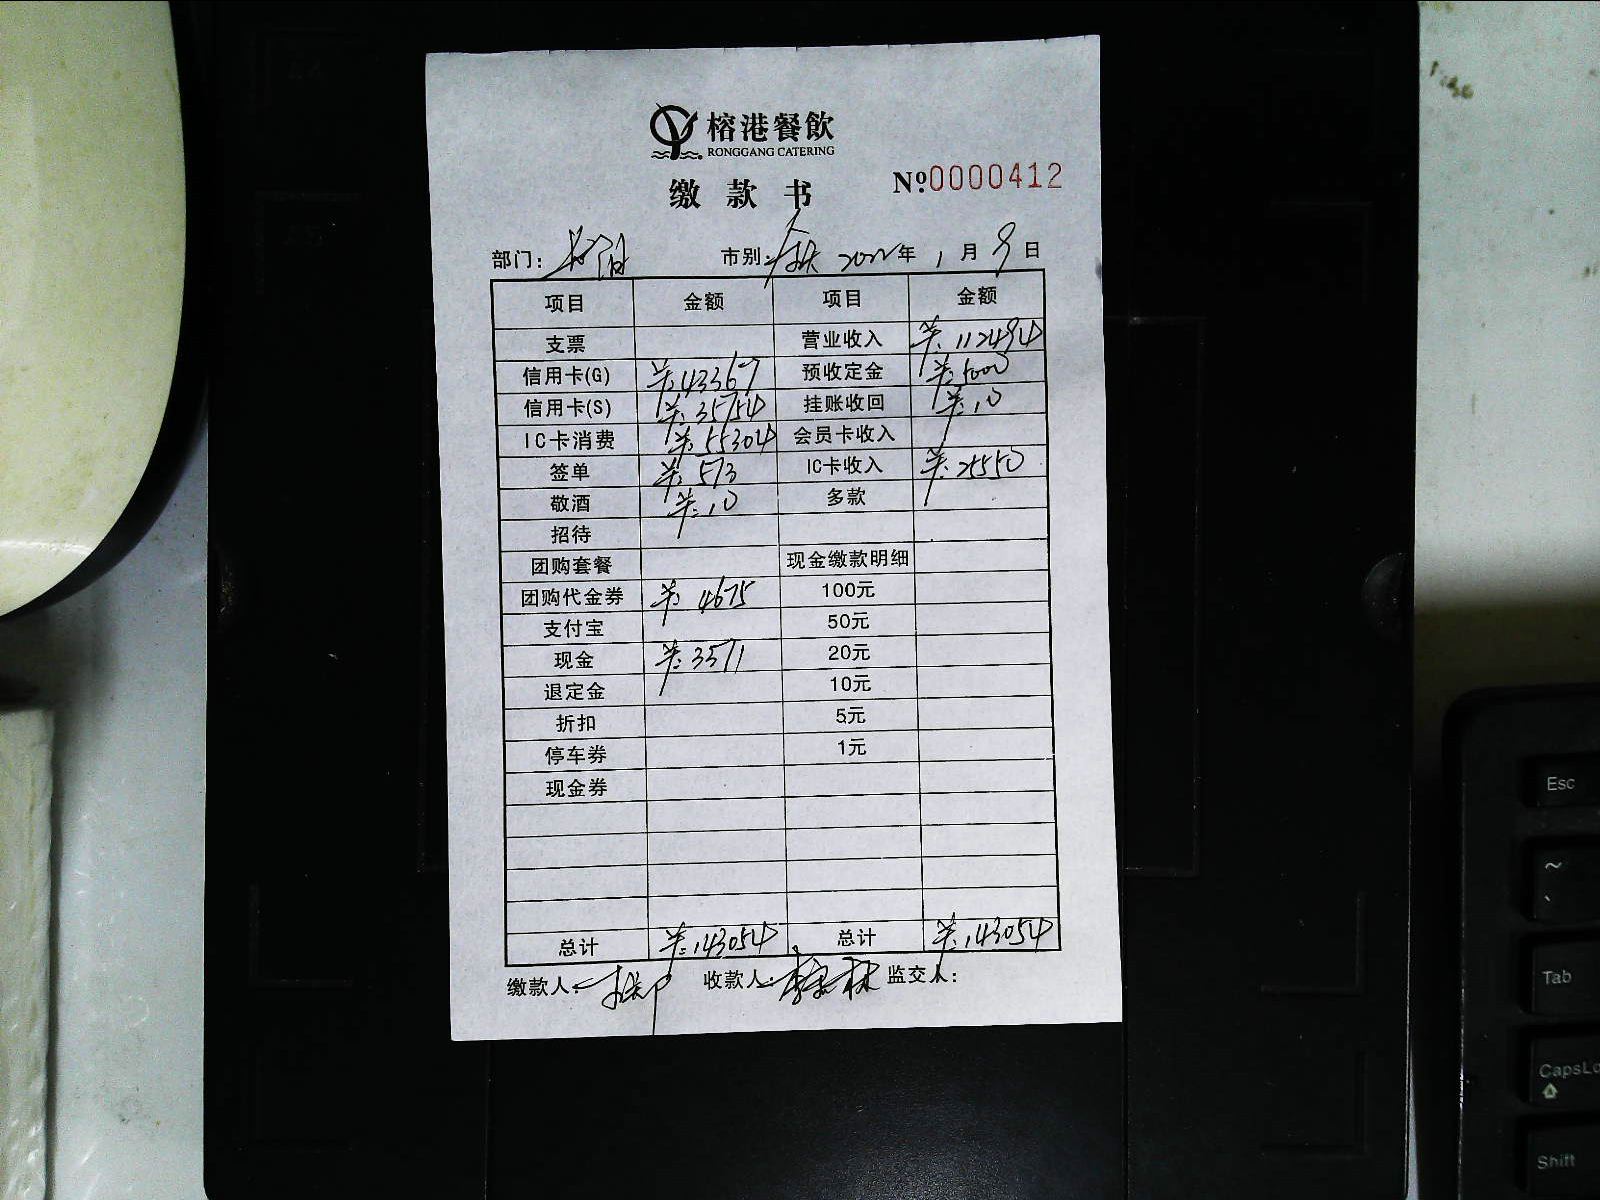 榕港餐飲
RONGGANG CATERING
缴款书 Nº0000412
部门: 市别: 2022年 1月 9日
项目 金额 项目 金额
支票 营业收入 ¥:112494
信用卡(G) ¥:43367 预收定金 ¥:5000
信用卡(S) ¥:35754 挂账收回 ¥:10
IC卡消费 ¥:55304 会员卡收入
签单 ¥:573 IC卡收入 ¥:25550
敬酒 ¥:10 多款
招待
团购套餐 现金缴款明细
团购代金券 ¥:4675 100元
支付宝 50元
现金 ¥:3571 20元
退定金 10元
折扣 5元
停车券 1元
现金券
总计 ¥:143054 总计 ¥:143054
缴款人: 收款人: 监交人:
Esc
~
、
Tab
CapsLo
Shift